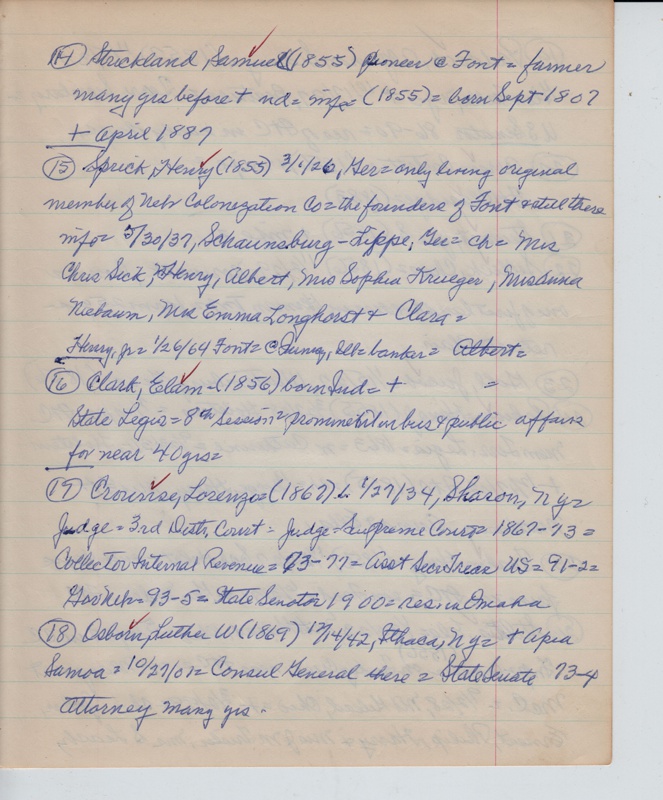 14 Strickland, Samuel (1855) pioneer @ Font = farmer
many yrs before + nd = info = (1855) = born Sept 1807
+ April 1887
15 Sprick, Henry (1855) 3/1/26, Ger = only living original
member of Nebr Colonezation Co = the founders of Font & still there
info = 5/30/37, Schaunsburg - Lippe, Ger = ch = Mrs
Chris Sick, Henry, Albert, Mrs Sophia Krueger, Mrs Anna
Niebaum, Mrs Emma Longhorst & Clara =
Henry, Jr = 1/26/64 Font = @ Ill = banker = Albert =
16 Clark, Elam - (1856) born Ind = + =
State Legis = 8th Session = prominent in bus & public affairs
for near 40 yrs =
17 Crounse, Lorenzo = (1867) b. 1/27/34, Sharon, NY =
Judge = 3rd Court = Judge = Supreme Court = 1867-73 =
Collector Internal Revenue = 73-77 = Asst Secr Treas US = 91-2 =
Gov Neb = 93-5 = State Senator 1900 = res. in Omaha
18 Osborn, Luther W (1869) 12/14/42, Ithaca, NY = + Apia
Samoa = 10/27/01 = Consul General there = State Senate 73-4
Attorney many yrs.